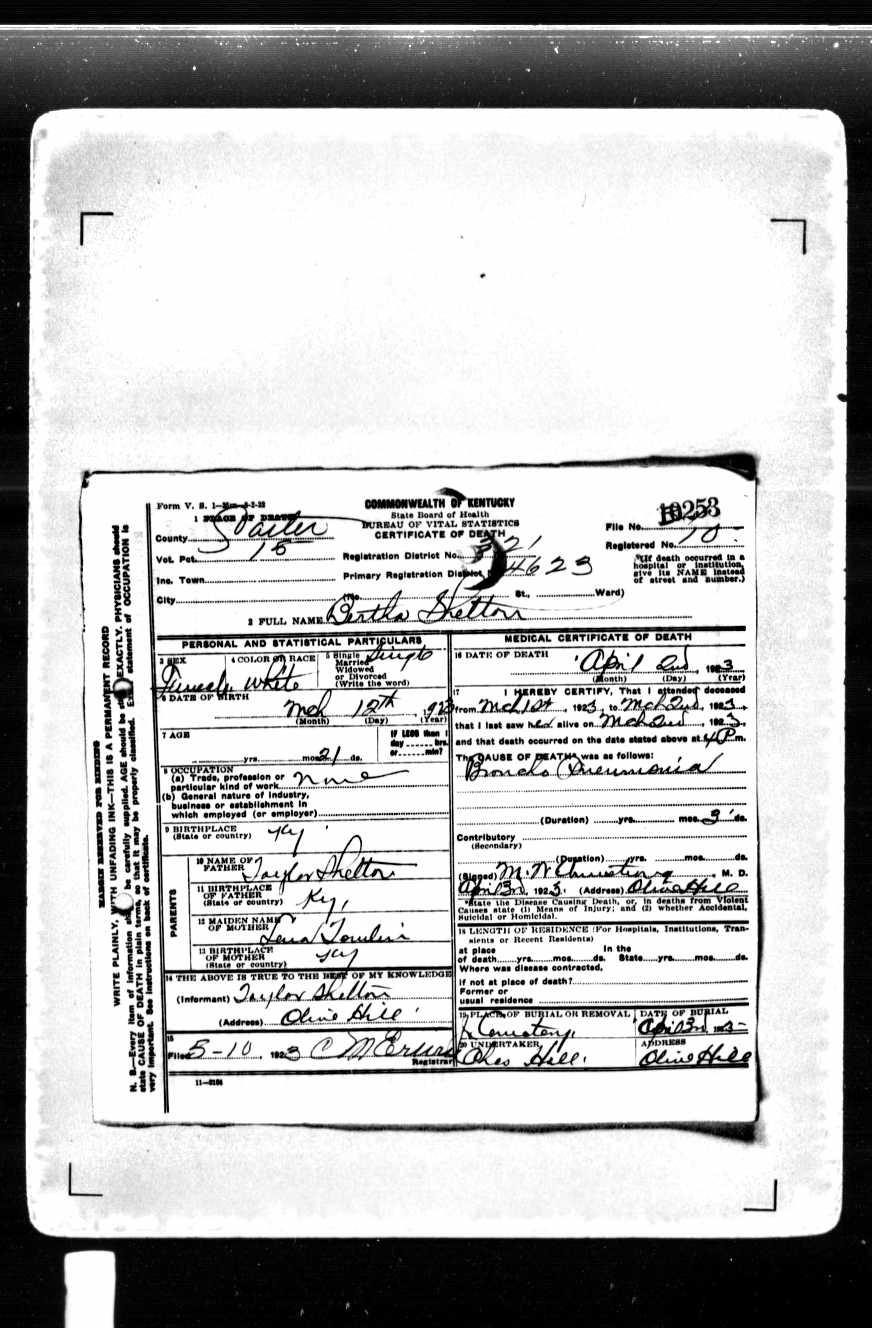 Form V. S. 1—
COMMONWEALTH OF KENTUCKY
State Board of Health
BUREAU OF VITAL STATISTICS
CERTIFICATE OF DEATH
File No. 10253
Registered No. 10
1 PLACE OF DEATH
County Carter
Vot. Pct. 15
Registration District No. 321
Inc. Town
Primary Registration District 4623
City (No. St., Ward)
(If death occurred in a hospital or institution, give its NAME instead of street and number.)
2 FULL NAME Bertha Shelton
PERSONAL AND STATISTICAL PARTICULARS
3 SEX Female
4 COLOR OR RACE White
5 Single Married Widowed or Divorced (Write the word) Single
6 DATE OF BIRTH
Mch 12th, 1923
(Month) (Day) (Year)
7 AGE
yrs. mos. 21 ds.
IF LESS than 1 day hrs. or min?
8 OCCUPATION
(a) Trade, profession or particular kind of work none
(b) General nature of industry, business or establishment in which employed (or employer)
9 BIRTHPLACE
(State or country) Ky
PARENTS
10 NAME OF FATHER Taylor Shelton
11 BIRTHPLACE OF FATHER
(State or country) Ky,
12 MAIDEN NAME OF MOTHER Lena Tomlin
13 BIRTHPLACE OF MOTHER
(State or country) Ky
14 THE ABOVE IS TRUE TO THE BEST OF MY KNOWLEDGE
(Informant) Taylor Shelton
(Address) Olive Hill
15
Filed 5-10, 1923 C M
Registrar
11—
MEDICAL CERTIFICATE OF DEATH
16 DATE OF DEATH
April 2nd, 1923
(Month) (Day) (Year)
17 I HEREBY CERTIFY, That I attended deceased
from Mch 1st, 1923, to Mch 2nd, 1923,
that I last saw her alive on Mch 2nd, 1923,
and that death occurred on the date stated above at 4 P m.
The CAUSE OF DEATH* was as follows:
Broncho Pneumonia
(Duration) yrs. mos. 3 ds.
Contributory
(Secondary)
(Duration) yrs. mos. ds.
(Signed) M. W., M. D.
April 3rd, 1923. (Address) Olive Hill
*State the Disease Causing Death, or, in deaths from Violent
Causes state (1) Means of Injury; and (2) whether Accidental,
Suicidal or Homicidal.
18 LENGTH OF RESIDENCE (For Hospitals, Institutions, Tran-
sients or Recent Residents)
at place In the
of death yrs. mos. ds. State yrs. mos. ds.
Where was disease contracted,
if not at place of death?
Former or
usual residence
19 PLACE OF BURIAL OR REMOVAL
Cemetery
DATE OF BURIAL
April 3rd, 1923
20 UNDERTAKER
Hill
ADDRESS
Olive Hill
MARGIN RESERVED FOR BINDING
WRITE PLAINLY, WITH UNFADING INK—THIS IS A PERMANENT RECORD
N. B.—Every item of information should be carefully supplied. AGE should be stated EXACTLY. PHYSICIANS should
state CAUSE OF DEATH in plain terms, so that it may be properly classified. Exact statement of OCCUPATION is
very important. See instructions on back of certificate.